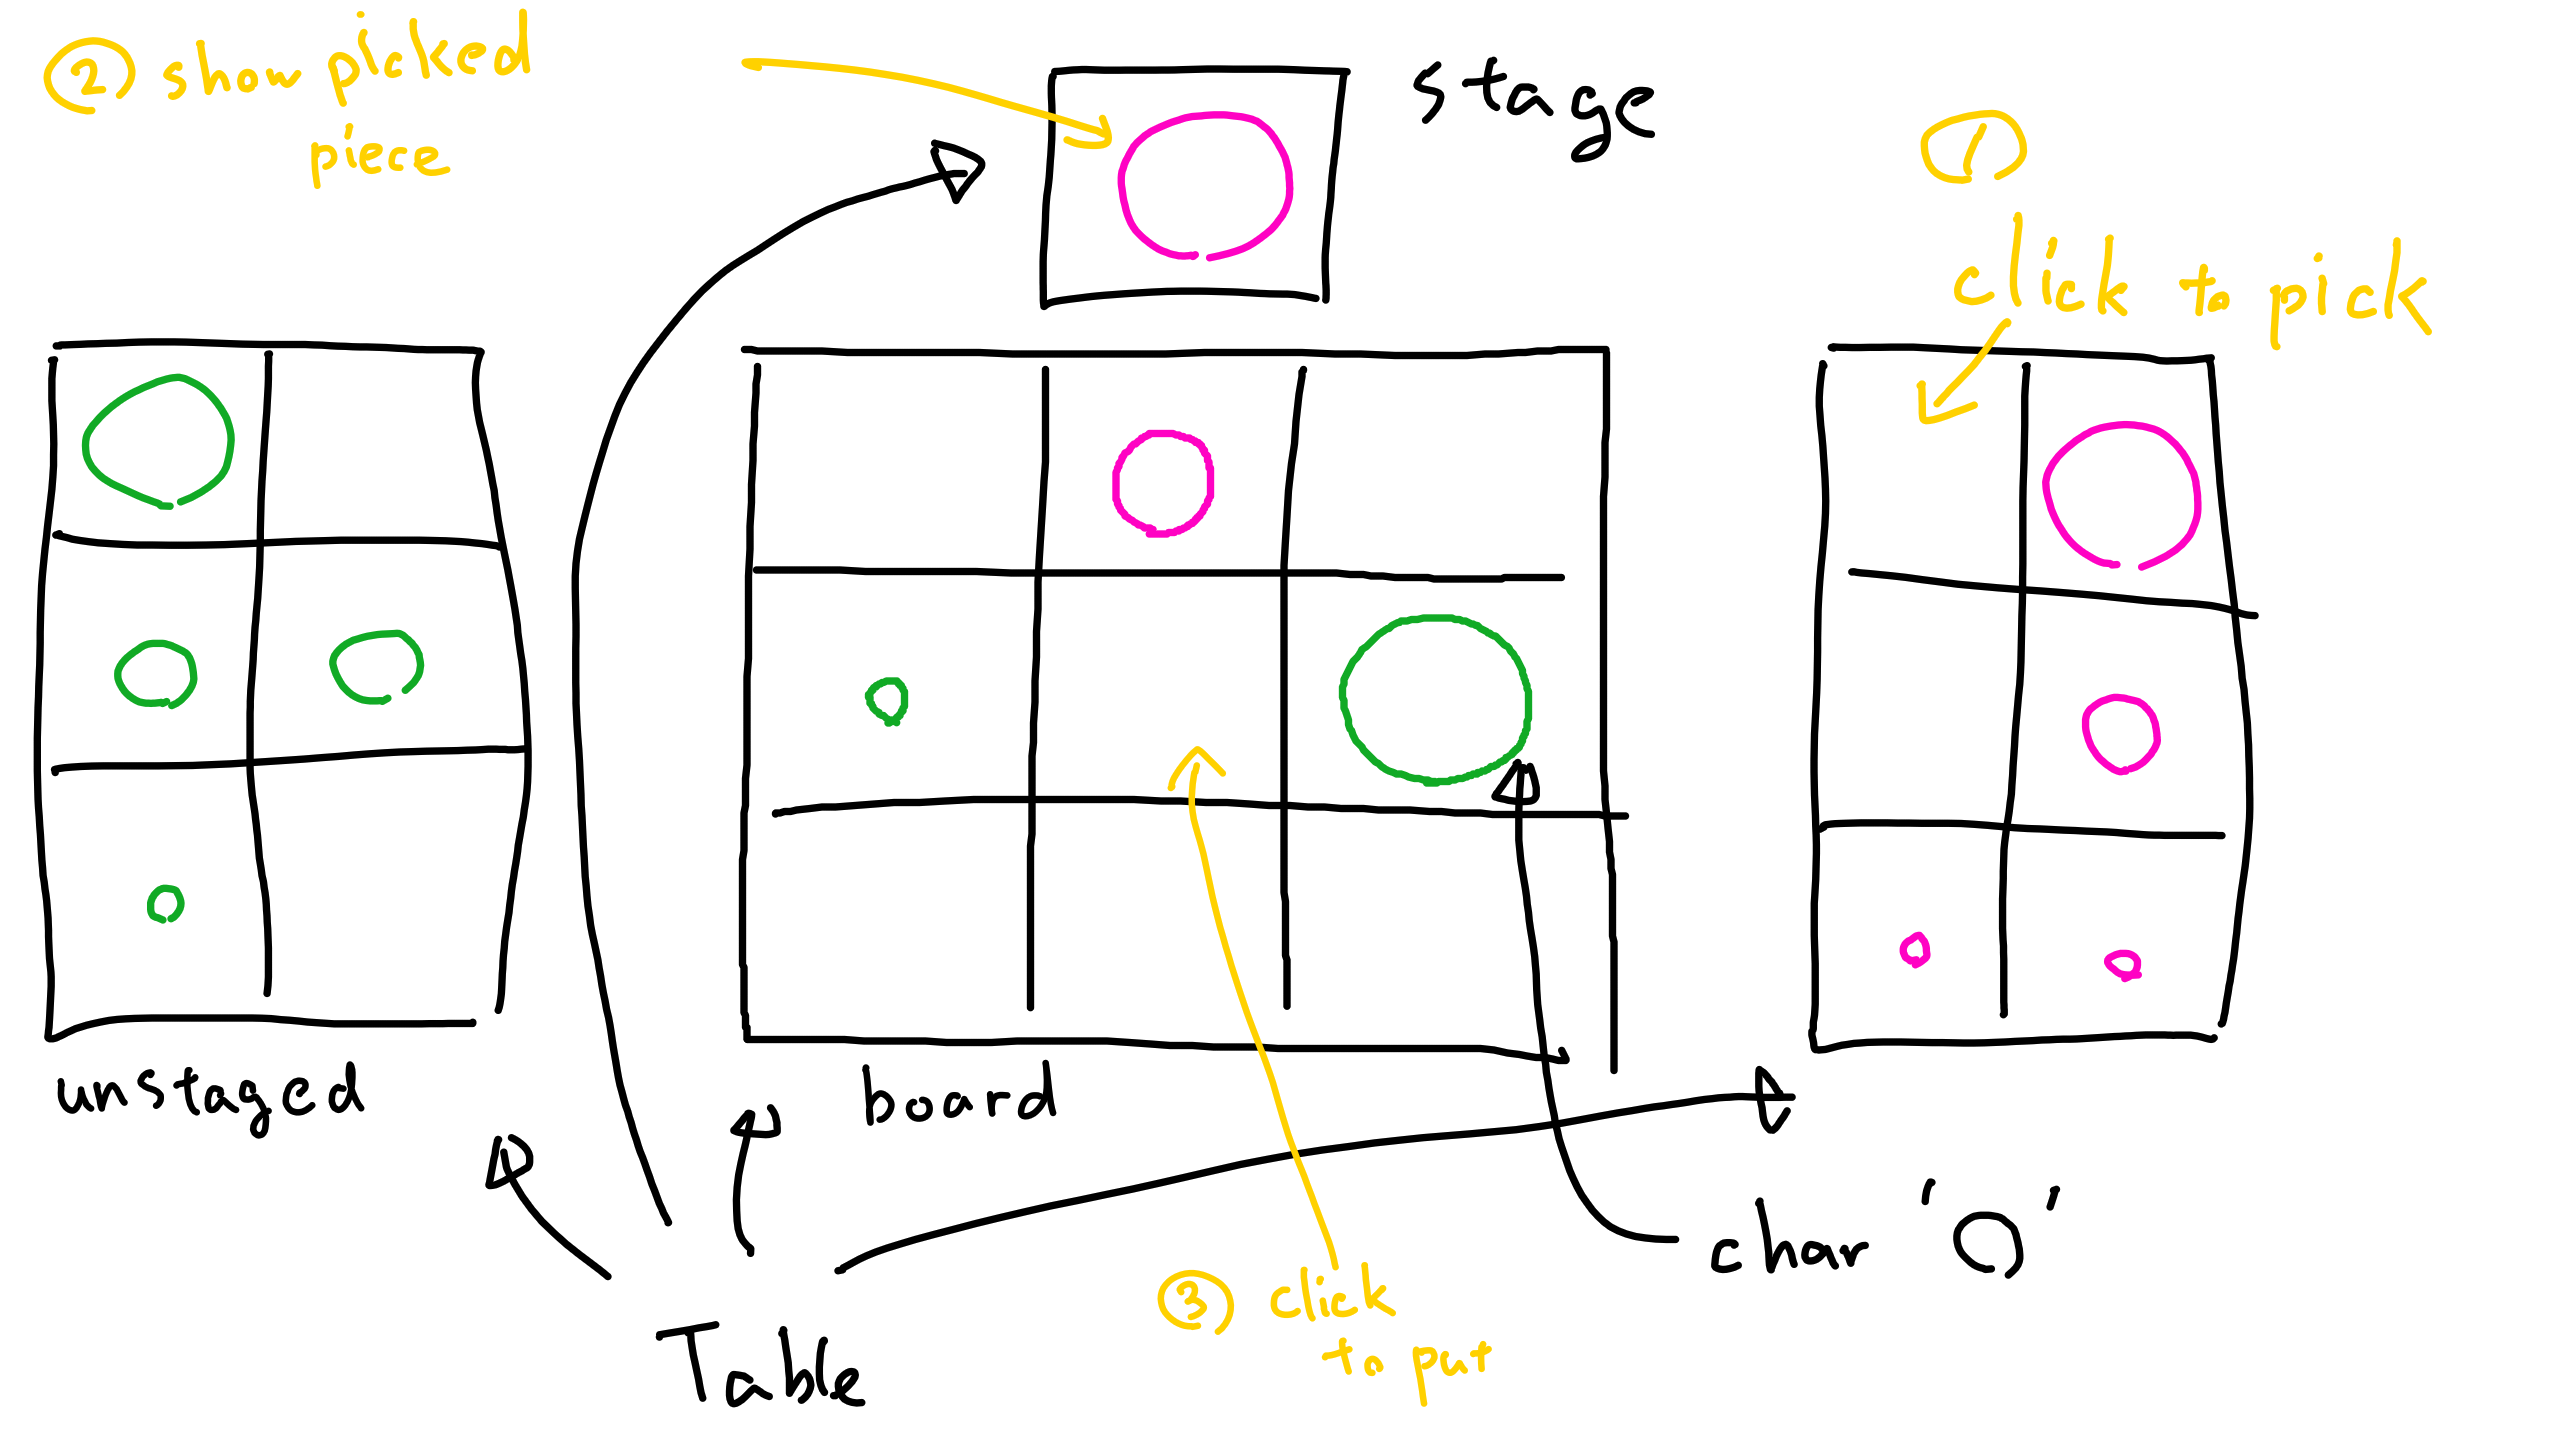 ② show picked
piece
stage
①
click to pick
unstaged
board
char 'O'
③ click
to put
Table